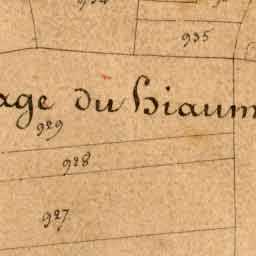 934
935
age du hiaum
929
928
927